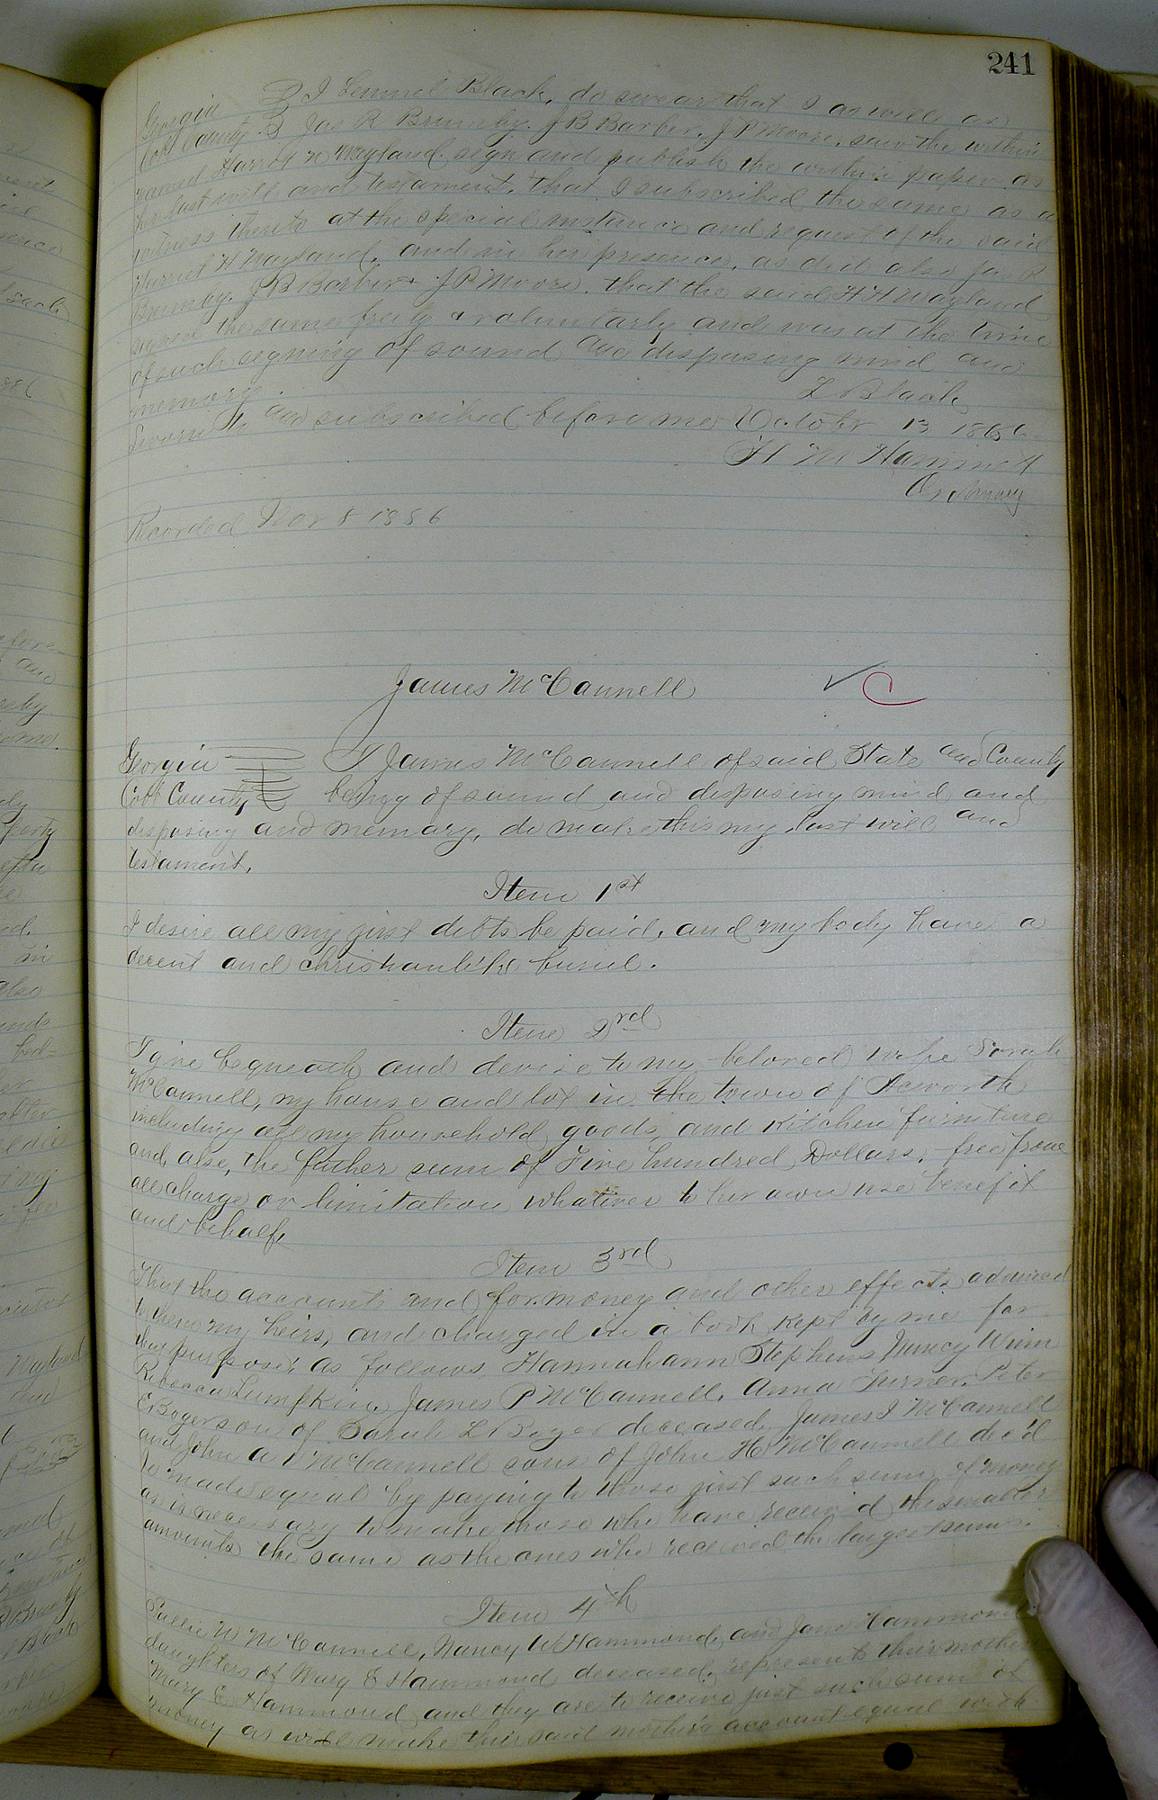 241
Georgia } I Lemuel Black, do swear that I as well as
Cobb County } Jas R Brumby. J B Barber. J P Moore, saw the within
named Harriet H Wayland sign and publish the within paper as
her last will and testament, that I subscribed the same as a
witness thereto at the special instance and request of the said
Harriet H Wayland, and in her presence, as did also Jas R
Brumby. J B Barber & J P Moore. that the said H H Wayland
signed the same freely & voluntarly and was at the time
of such signing of sound and disposing mind and
memory. L Black
Sworn to and subscribed before me October 13 1886
H M Hammett
Ordinary
Recorded Nov 8 1886
James McCannell
Georgia I James McCannell of said State and County
Cobb County being of sound and disposing mind and
disposing and memory, do make this my last will and
testament.
Item 1st
I desire all my just debts be paid, and my body have a
decent and christianlike burial.
Item 2rd
I give bequeath and devise to my beloved wife Sarah
McCannell, my house and lot in the town of Acworth
including all my household goods and Kitchen furniture
and also, the father sum of Five hundred Dollars, free from
all charge or limitation whatever to her own use benefit
and behalf.
Item 3rd
That the accounts and for money and other effects advanced
to them my heirs, and charged in a book kept by me for
that purpose, as follows Hannah ann Stephens Nancy Winn
Rebecca Lumpkin, James P McCannell. Anna Turner. Peter
E Boyer son of Sarah L Boyer deceased, James I McCannell
and John A V McCannell sons of John H McCannell dec'd
be made equal by paying to those just such sums of money
as is necessary to make those who have received the smaller
amounts the same as the ones who received the larger sums.
Item 4th
Sallie W McCannell, Nancy W Hammond, and Jane Hammond
daughters of Mary E Hammond deceased, represents their mother
Mary E Hammond and they are to receive just such sum of
money as will make their said mother's account equal with